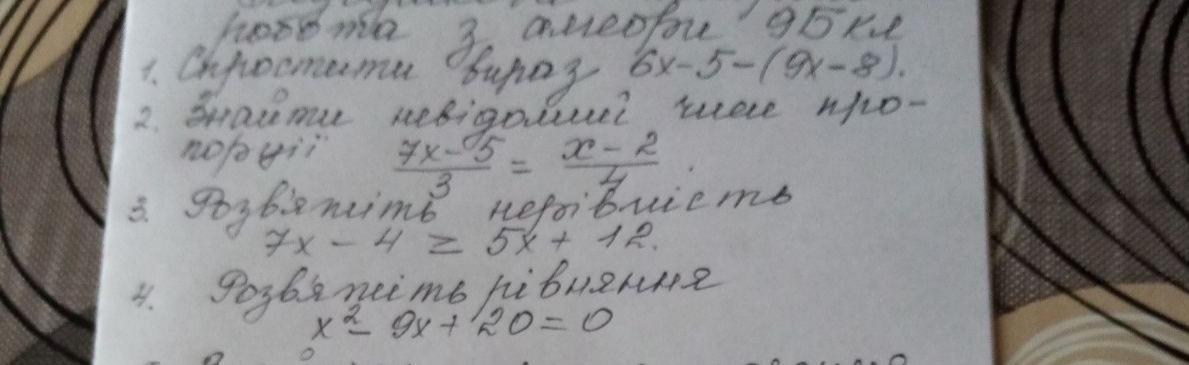 робота з алгебри 9Б кл
1. Спростити вираз 6x-5-(9x-8).
2. Знайти невідомий член про-
порції (7x-5)/3 = (x-2)/4.
3. Розв'яжіть нерівність
7x-4 ≥ 5x+12.
4. Розв'яжіть рівняння
x²-9x+20=0